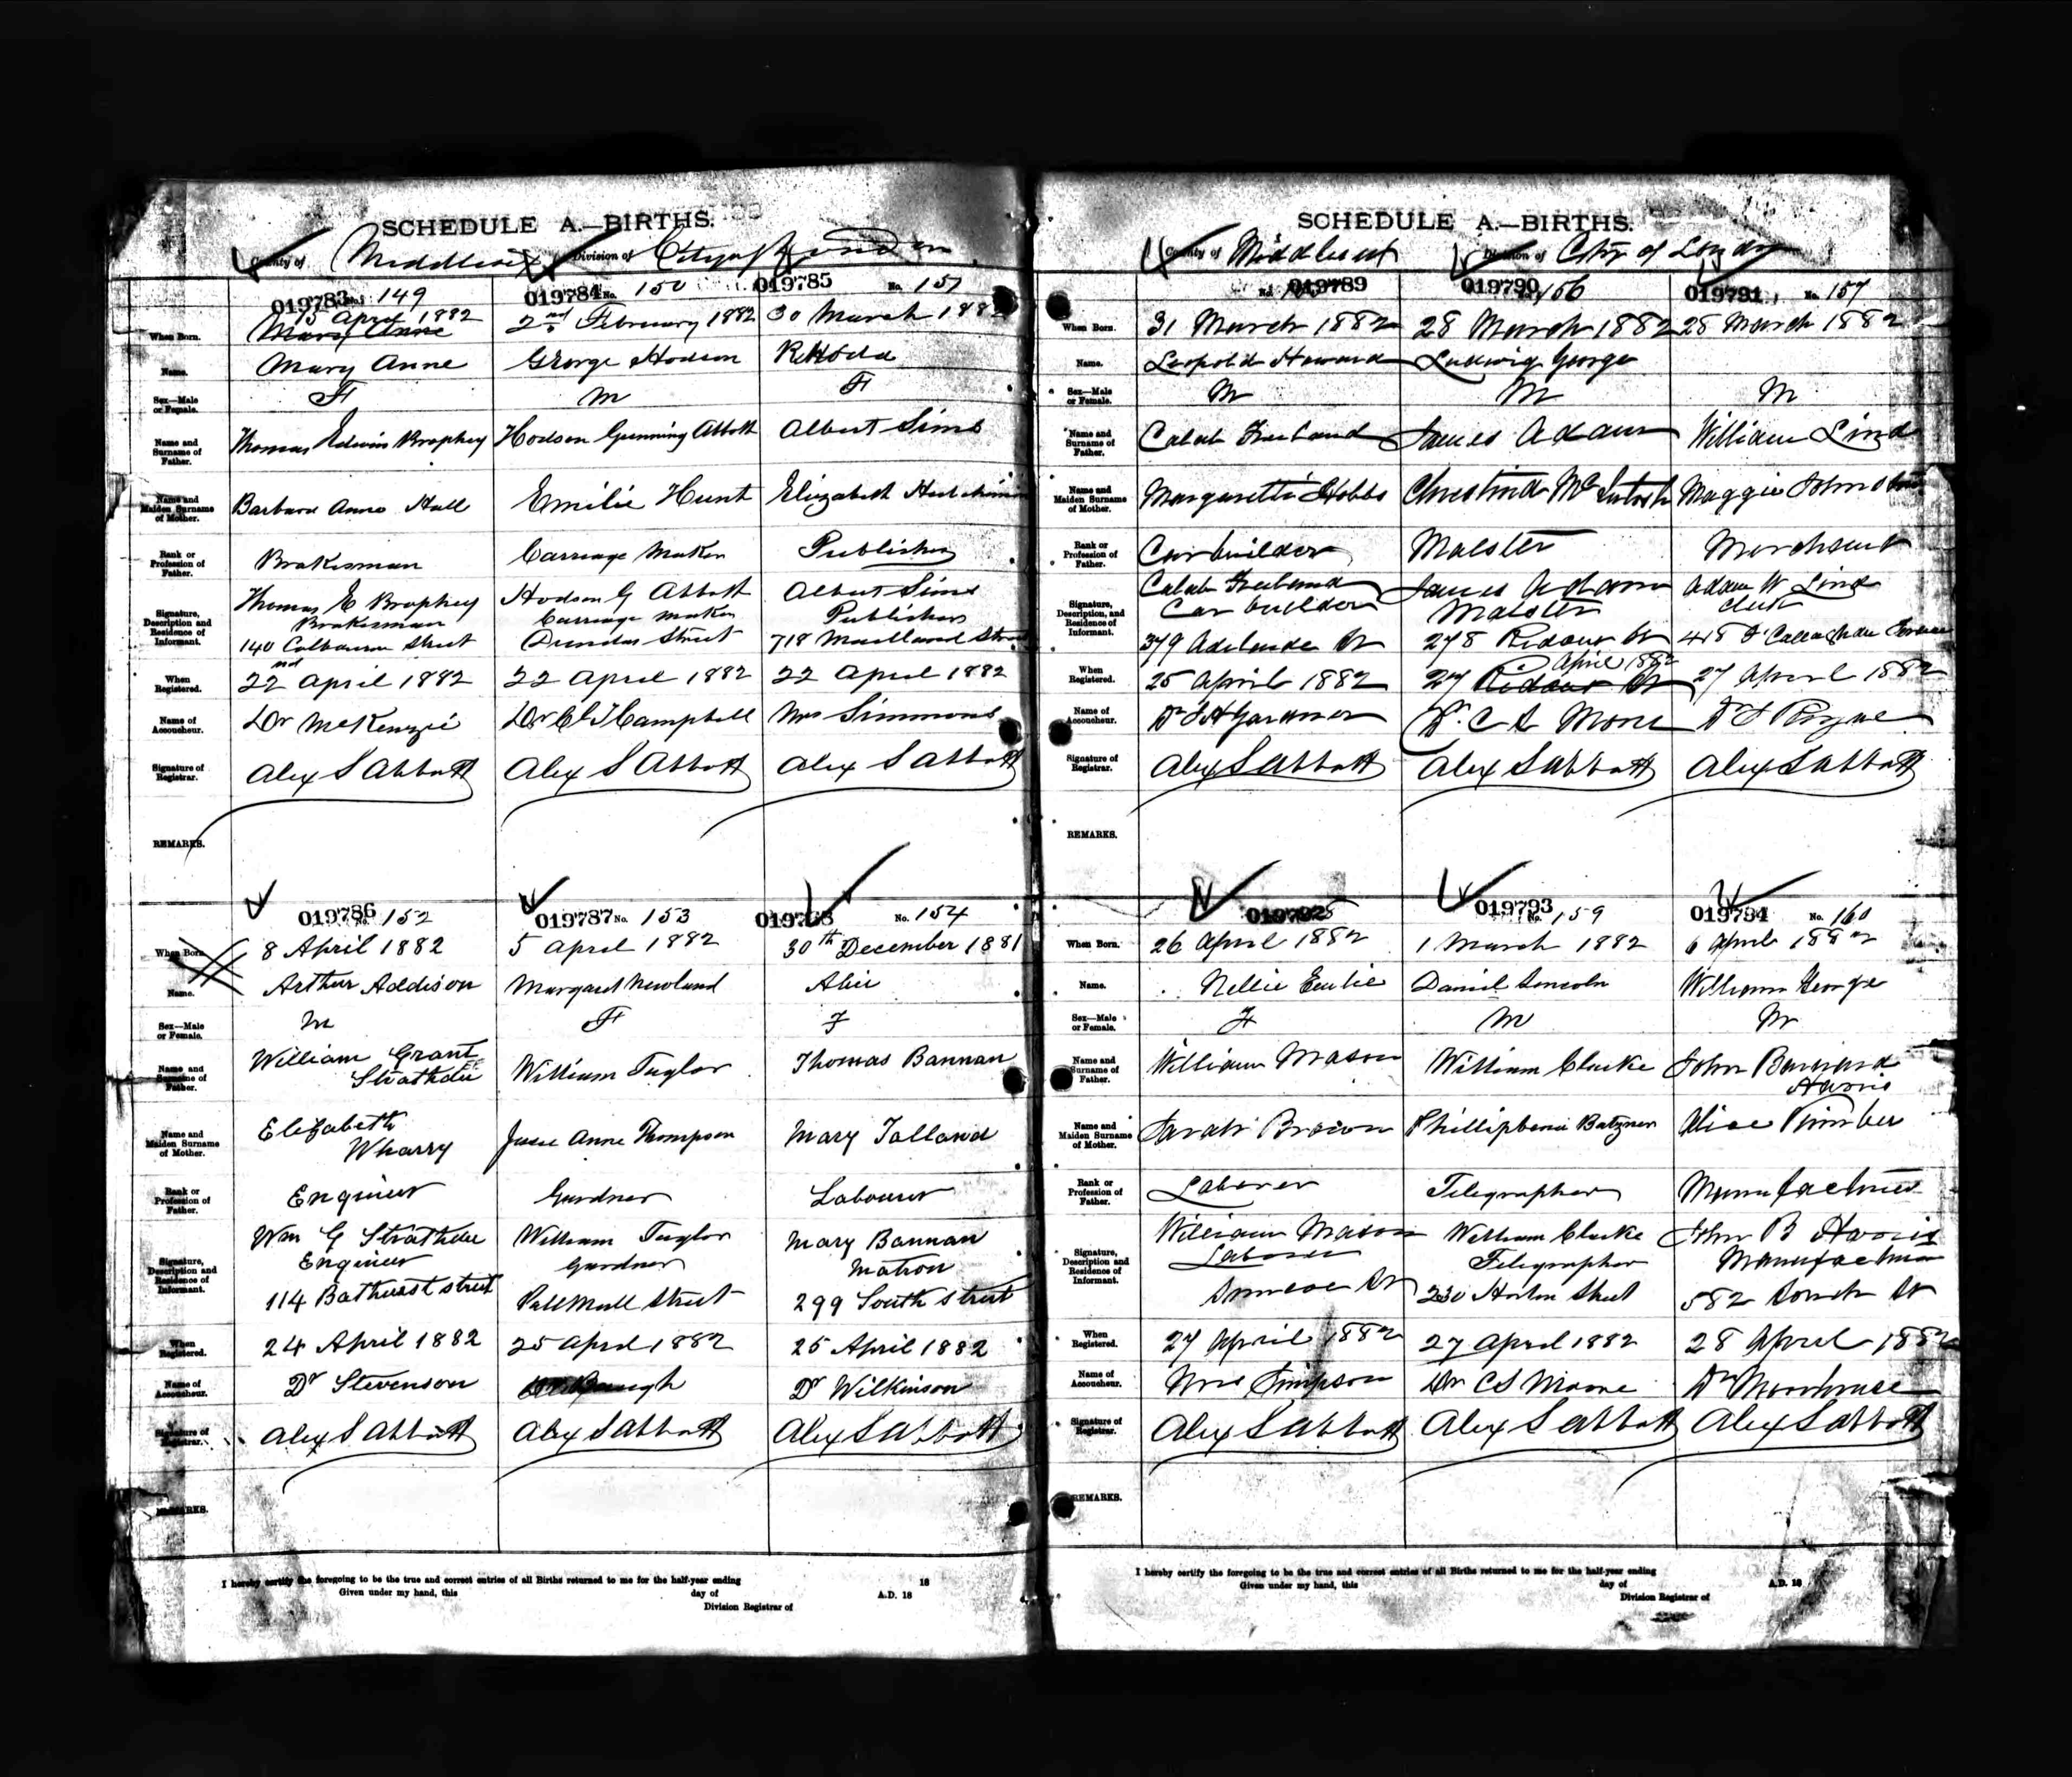 SCHEDULE A.—BIRTHS.
County of Middlesex Division of City of London
019783 No. 149
019784 No. 150
019785 No. 151
When Born.
15 April 1882
Mary Anne
2nd February 1882
30 March 1882
Name.
Mary Anne
George Hodson
Sex—Male or Female.
F
M
F
Name and Surname of Father.
Thomas Edwin Brophey
Hodson Gunning Abbott
Albert Sims
Name and Maiden Surname of Mother.
Barbara Anne Hall
Emilie Hunt
Elizabeth Hutchinson
Rank or Profession of Father.
Brakesman
Carriage Maker
Publisher
Signature, Description and Residence of Informant.
Thomas E Brophey
Brakesman
140 Colborne Street
Hodson G Abbott
Carriage Maker
Dundas Street
Albert Sims
Publisher
718 Maitland Street
When Registered.
22nd April 1882
22 April 1882
22 April 1882
Name of Accoucheur.
Dr McKenzie
Dr Campbell
Mrs Simmons
Signature of Registrar.
Alex S Abbott
Alex S Abbott
Alex S Abbott
REMARKS.
019786 No. 152
019787 No. 153
019788 No. 154
When Born.
8 April 1882
5 April 1882
30th December 1881
Name.
Arthur Addison
Margaret Newland
Alice
Sex—Male or Female.
M
F
F
Name and Surname of Father.
William Grant
Strathdee
William Taylor
Thomas Bannan
Name and Maiden Surname of Mother.
Elizabeth
Wharry
Jessie Anne Thompson
Mary Talland
Rank or Profession of Father.
Engineer
Gardner
Labourer
Signature, Description and Residence of Informant.
Wm G Strathdee
Engineer
114 Bathurst street
William Taylor
Gardner
Pall Mall Street
Mary Bannan
Matron
299 South street
When Registered.
24 April 1882
25 April 1882
25 April 1882
Name of Accoucheur.
Dr Stevenson
Dr Wilkinson
Signature of Registrar.
Alex S Abbott
Alex S Abbott
Alex S Abbott
REMARKS.
I hereby certify the foregoing to be the true and correct entries of all Births returned to me for the half-year ending 18
Given under my hand, this day of A.D. 18
Division Registrar of
SCHEDULE A.—BIRTHS.
County of Middlesex Division of City of London
No. 019789
019790 156
019791 No. 157
When Born.
31 March 1882
28 March 1882
28 March 1882
Name.
Leopold Howard
Ludwig George
Sex—Male or Female.
M
M
M
Name and Surname of Father.
Caleb
James Adams
William Lind
Name and Maiden Surname of Mother.
Margaretta Hobbs
Christina McIntosh
Maggie Johnston
Rank or Profession of Father.
Carbuilder
Malster
Merchant
Signature, Description, and Residence of Informant.
Caleb
Car builder
379 Adelaide St
James Adams
Malster
278 Ridout St
Adam W Lind
Clerk
418
When Registered.
25 April 1882
27 Ridout St April 1882
27 April 1882
Name of Accoucheur.
Dr Gardiner
Dr. C S Moore
Dr
Signature of Registrar.
Alex S Abbott
Alex S Abbott
Alex S Abbott
REMARKS.
019793 No. 159
019794 No. 160
When Born.
26 April 1882
1 March 1882
6 April 1882
Name.
Nellie
Daniel Lincoln
William George
Sex—Male or Female.
F
M
M
Name and Surname of Father.
William Mason
William Clarke
John Barnard
Harris
Name and Maiden Surname of Mother.
Sarah Brown
Phillipbena Batzner
Alice Kimber
Rank or Profession of Father.
Laborer
Telegrapher
Manufacturer
Signature, Description and Residence of Informant.
William Mason
Laborer
Simcoe St
William Clarke
Telegrapher
230 Horton Street
John B Harris
Manufacturer
582 South St
When Registered.
27 April 1882
27 April 1882
28 April 1882
Name of Accoucheur.
Mrs Simpson
Dr C S Moore
Dr Moorhouse
Signature of Registrar.
Alex S Abbott
Alex S Abbott
Alex S Abbott
REMARKS.
I hereby certify the foregoing to be the true and correct entries of all Births returned to me for the half-year ending
Given under my hand, this day of A.D. 18
Division Registrar of